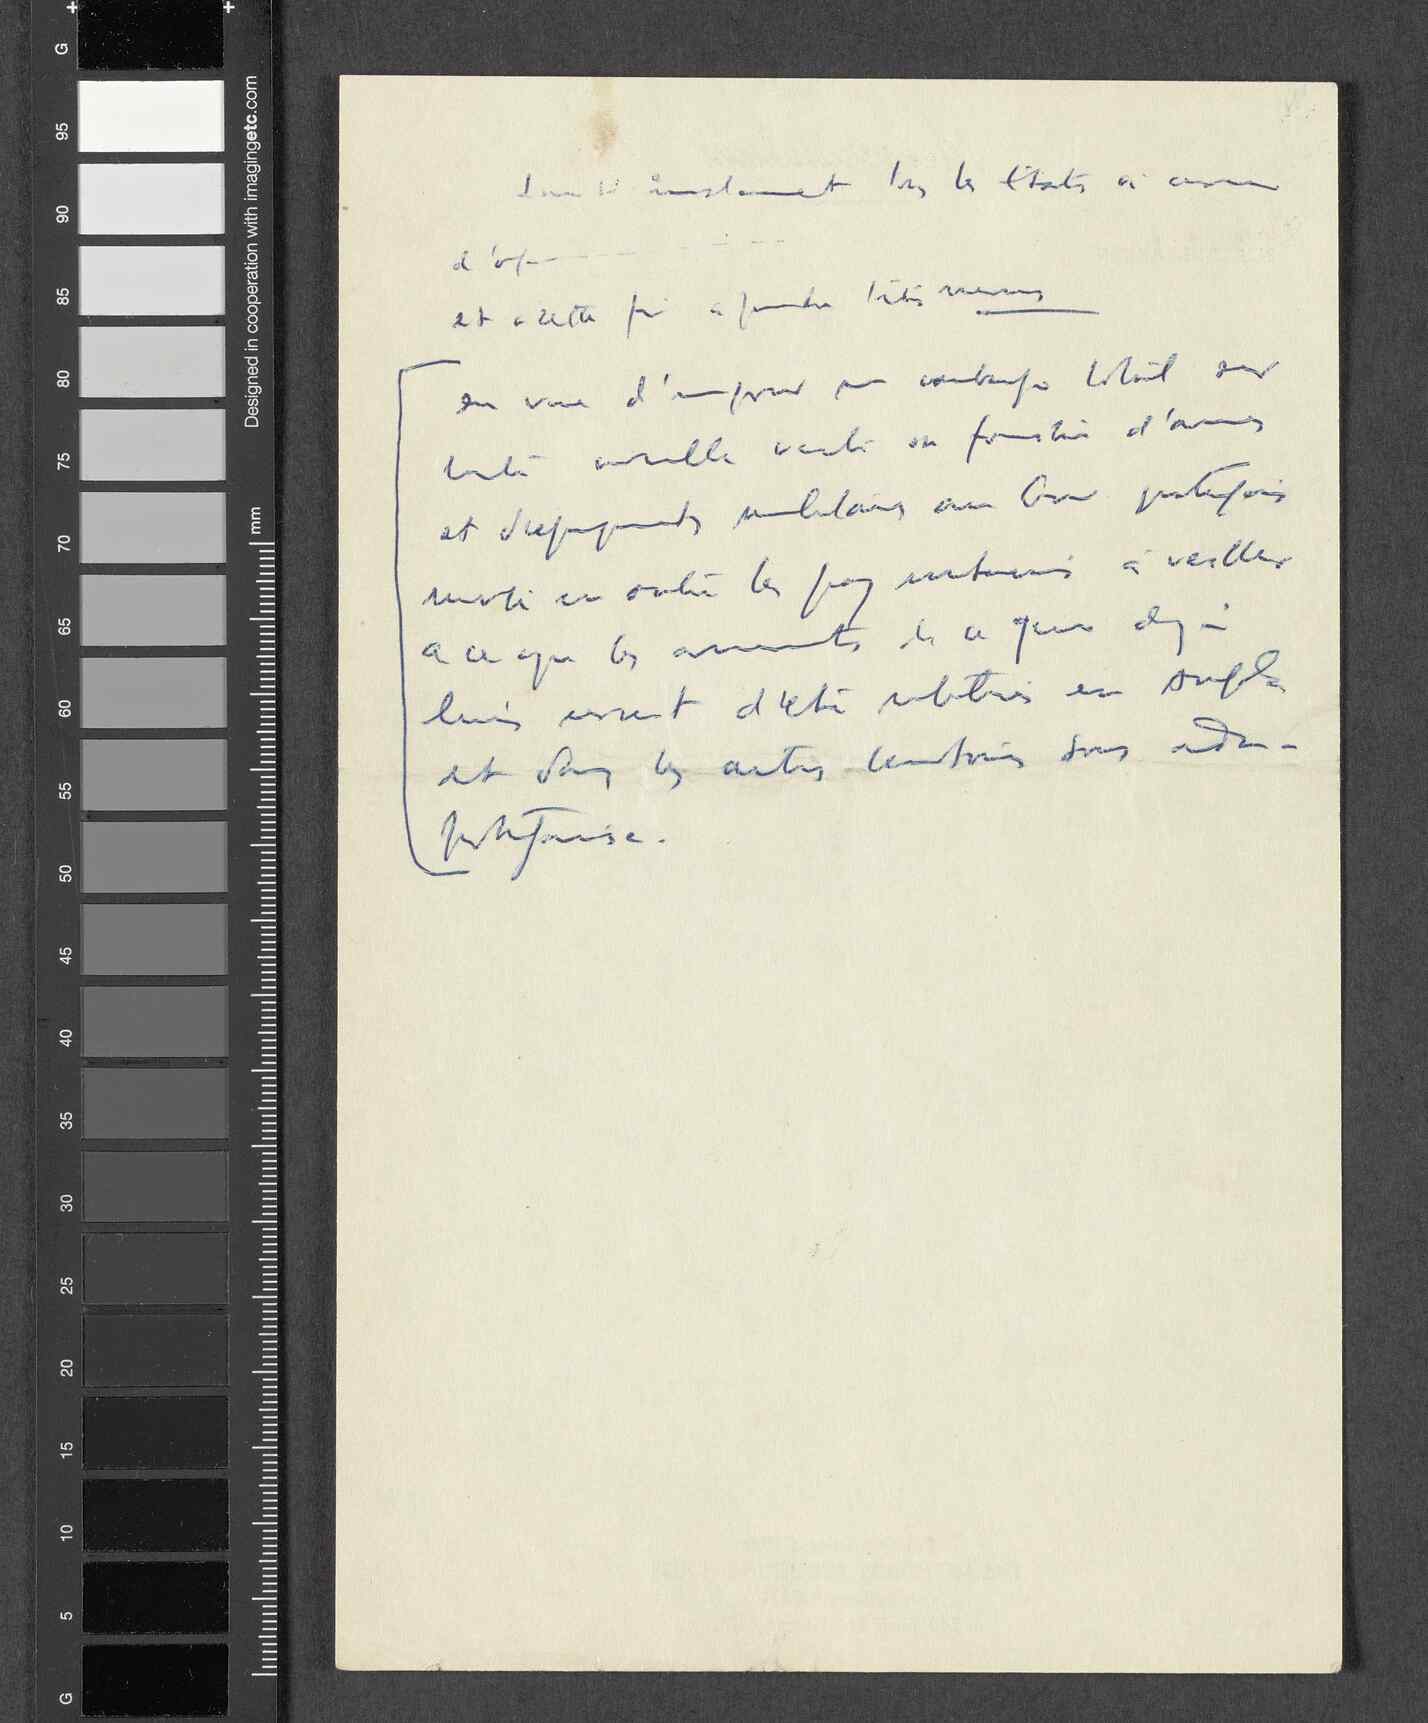 G
95
90
85
80
75
70
65
60
55
50
45
40
35
30
25
20
15
10
5
G
Designed in cooperation with imagingetc.com
mm
instamment tous les Etats à
d'
et à cette fin à prendre toutes mesures
en vue d'imposer un embargo total sur
toute nouvelle vente ou fourniture d'armes
et d'équipements militaires au Gouv portugais
invite en outre les pays à veiller
à ce que les armements de ce genre déjà
livrés cessent d'être utilisés en Angola
et dans les autres territoires sous adm-
portugaise.